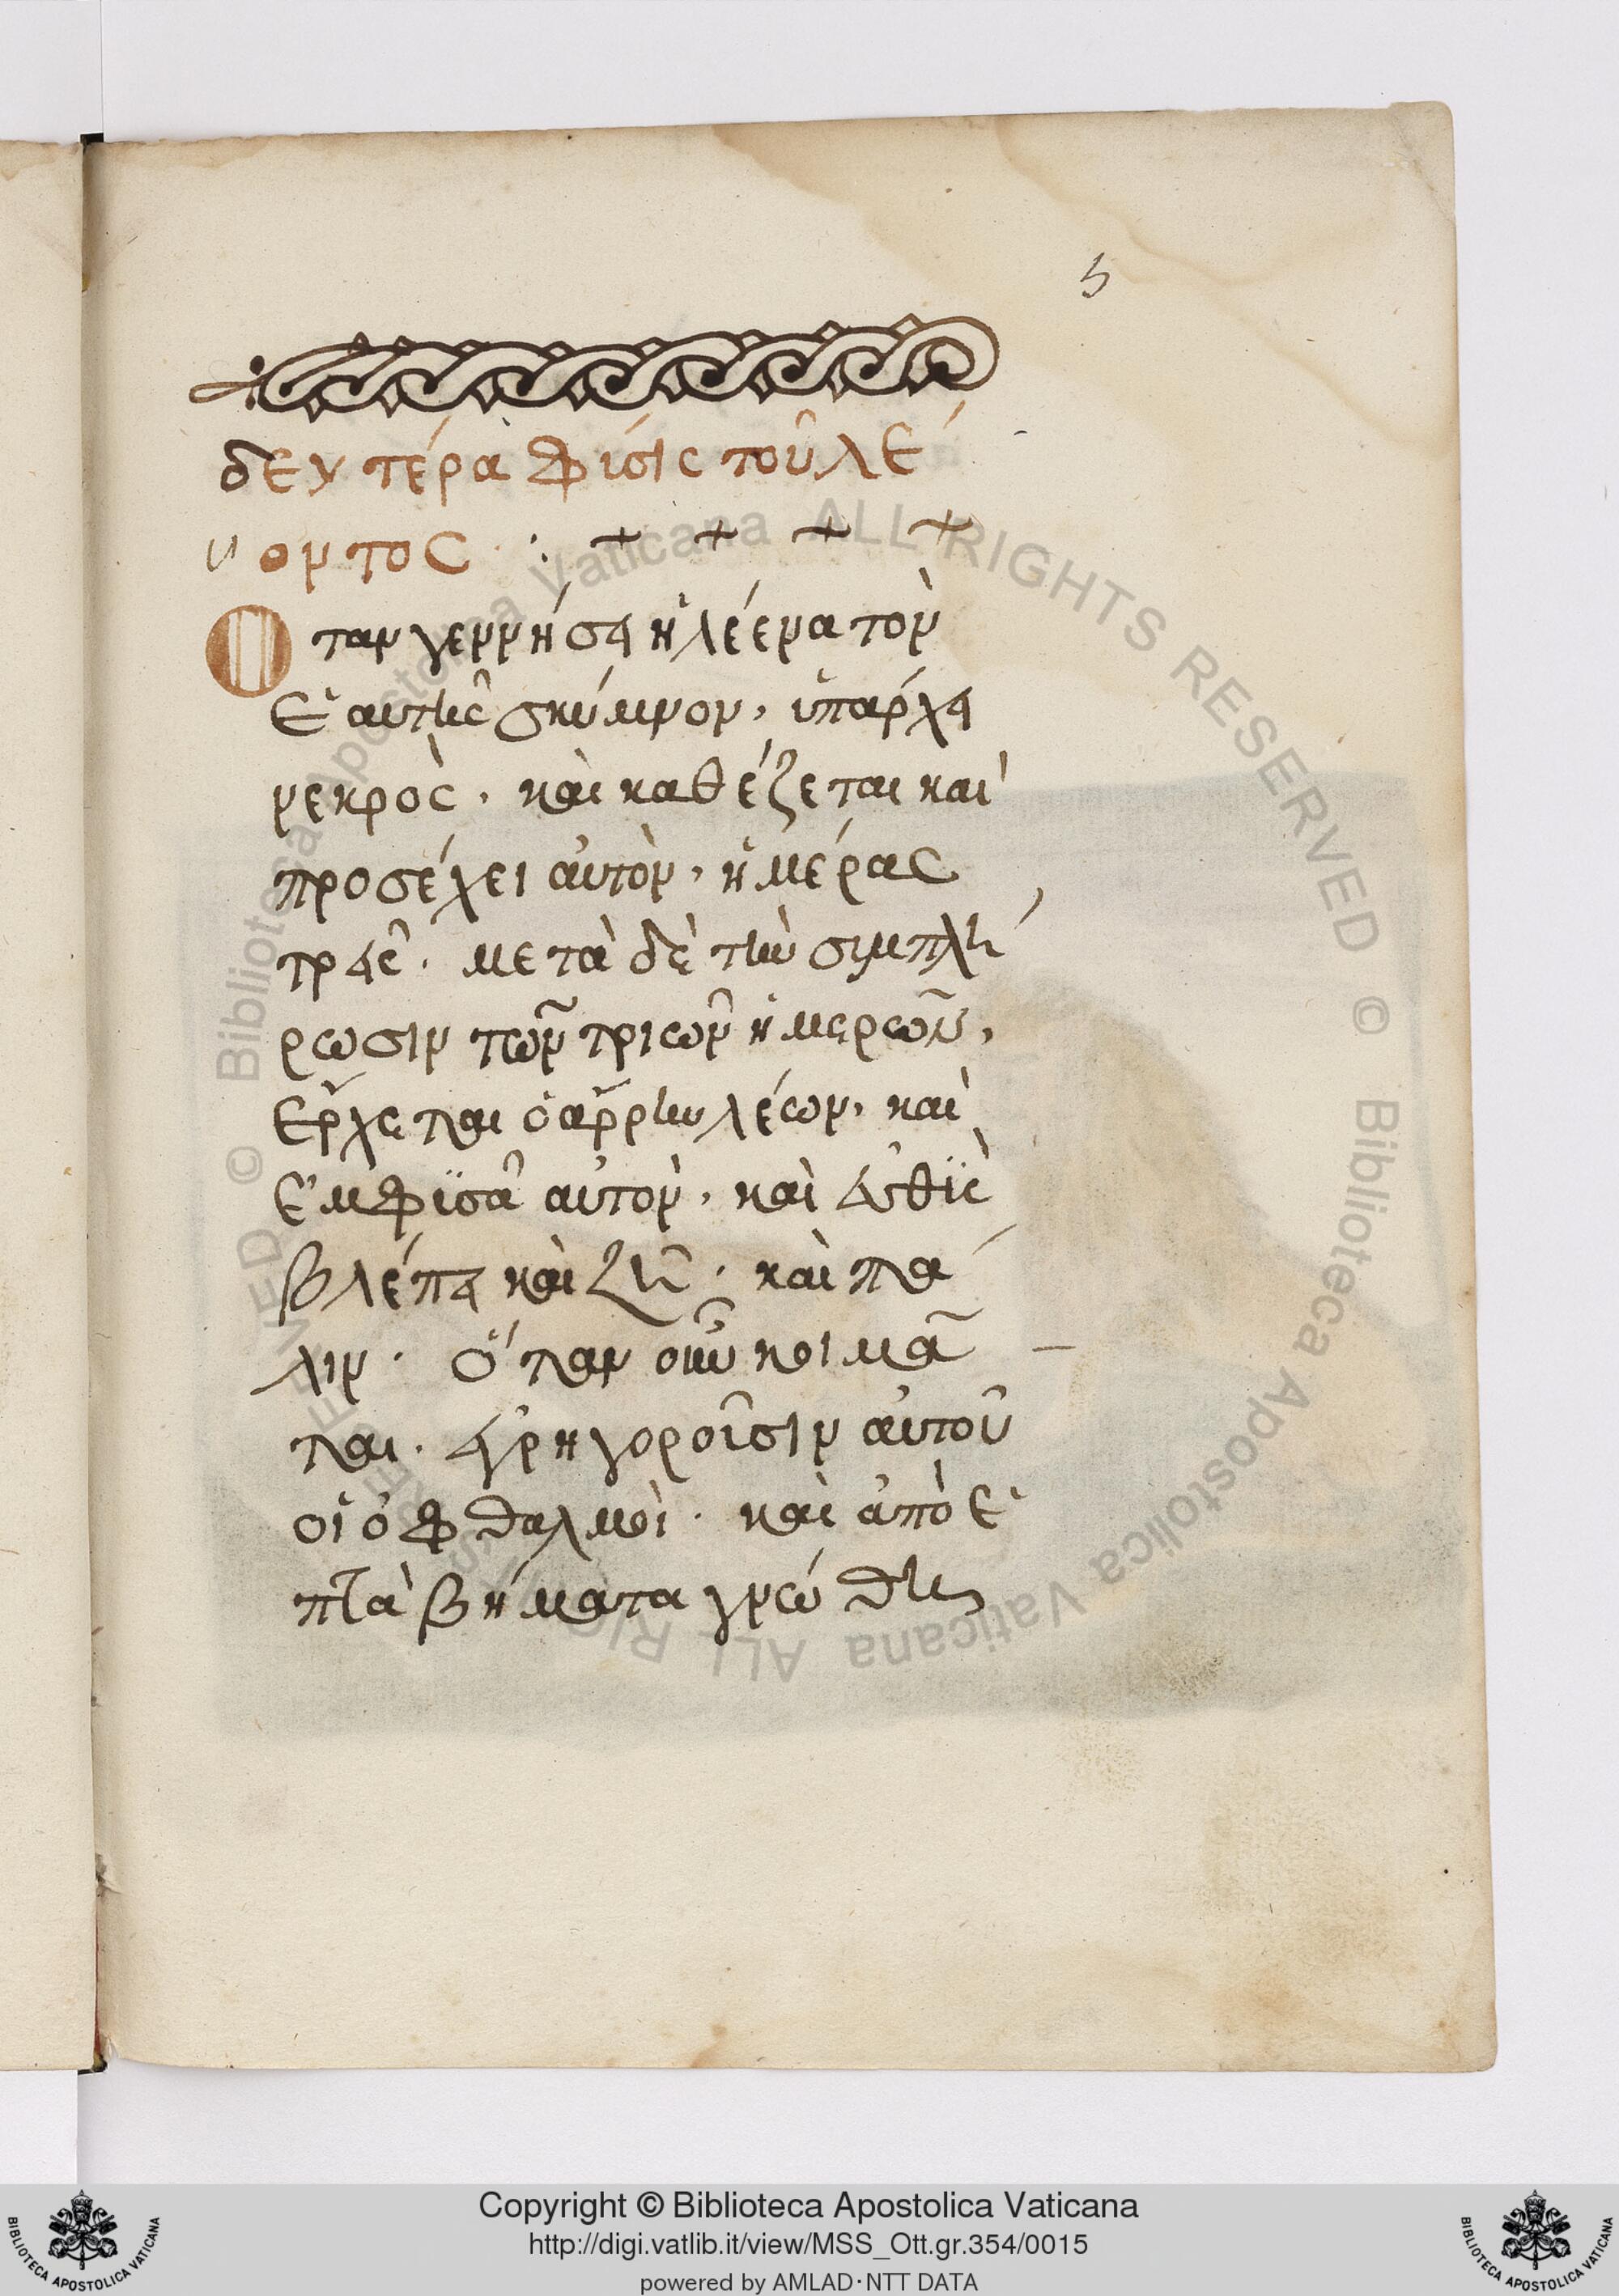 5
δευτέρα φίσις τοῦ λέ
οντος : + + + +
Ὅταν γεννήσει ἡ λέενα τὸν
ἑαυτῆς σκύμνον, ὑπάρχει
νεκρὸς, καὶ καθέζεται καὶ
προσέχει αὐτὸν, ἡμέρας
τρεῖς. μετὰ δὲ τὴν συμπλή
ρωσιν τῶν τριῶν ἡμερῶν,
ἔρχεται ὁ ἄρρην λέων, καὶ
ἐμφϊσᾶ αὐτὸν, καὶ εὐθῒς
βλέπει καὶ ζῆ. καὶ πά
λιν. ὅταν οὖν κοιμᾶ
ται. εἰρηγοροῦσιν αὐτοῦ
οἱ ὀφθαλμοὶ. καὶ ἀπὸ ἑ
πτὰ βήματα γνώθης
© Biblioteca Apostolica Vaticana ALL RIGHTS RESERVED © Biblioteca Apostolica Vaticana ALL RIGHTS RESERVED
Copyright © Biblioteca Apostolica Vaticana
http://digi.vatlib.it/view/MSS_Ott.gr.354/0015
powered by AMLAD·NTT DATA
BIBLIOTECA APOSTOLICA VATICANA
BIBLIOTECA APOSTOLICA VATICANA